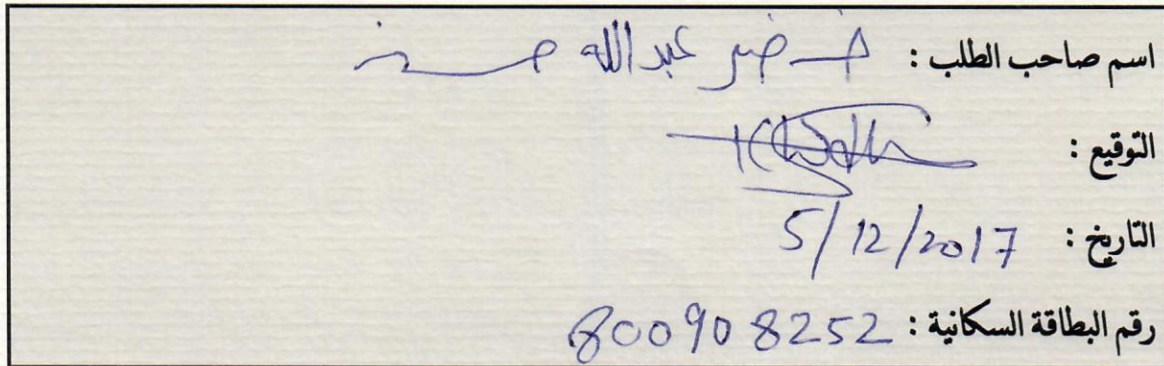 اسم صاحب الطلب : خضر عبدالله حسن
التوقيع :
التاريخ : 5/12/2017
رقم البطاقة السكانية : 800908252